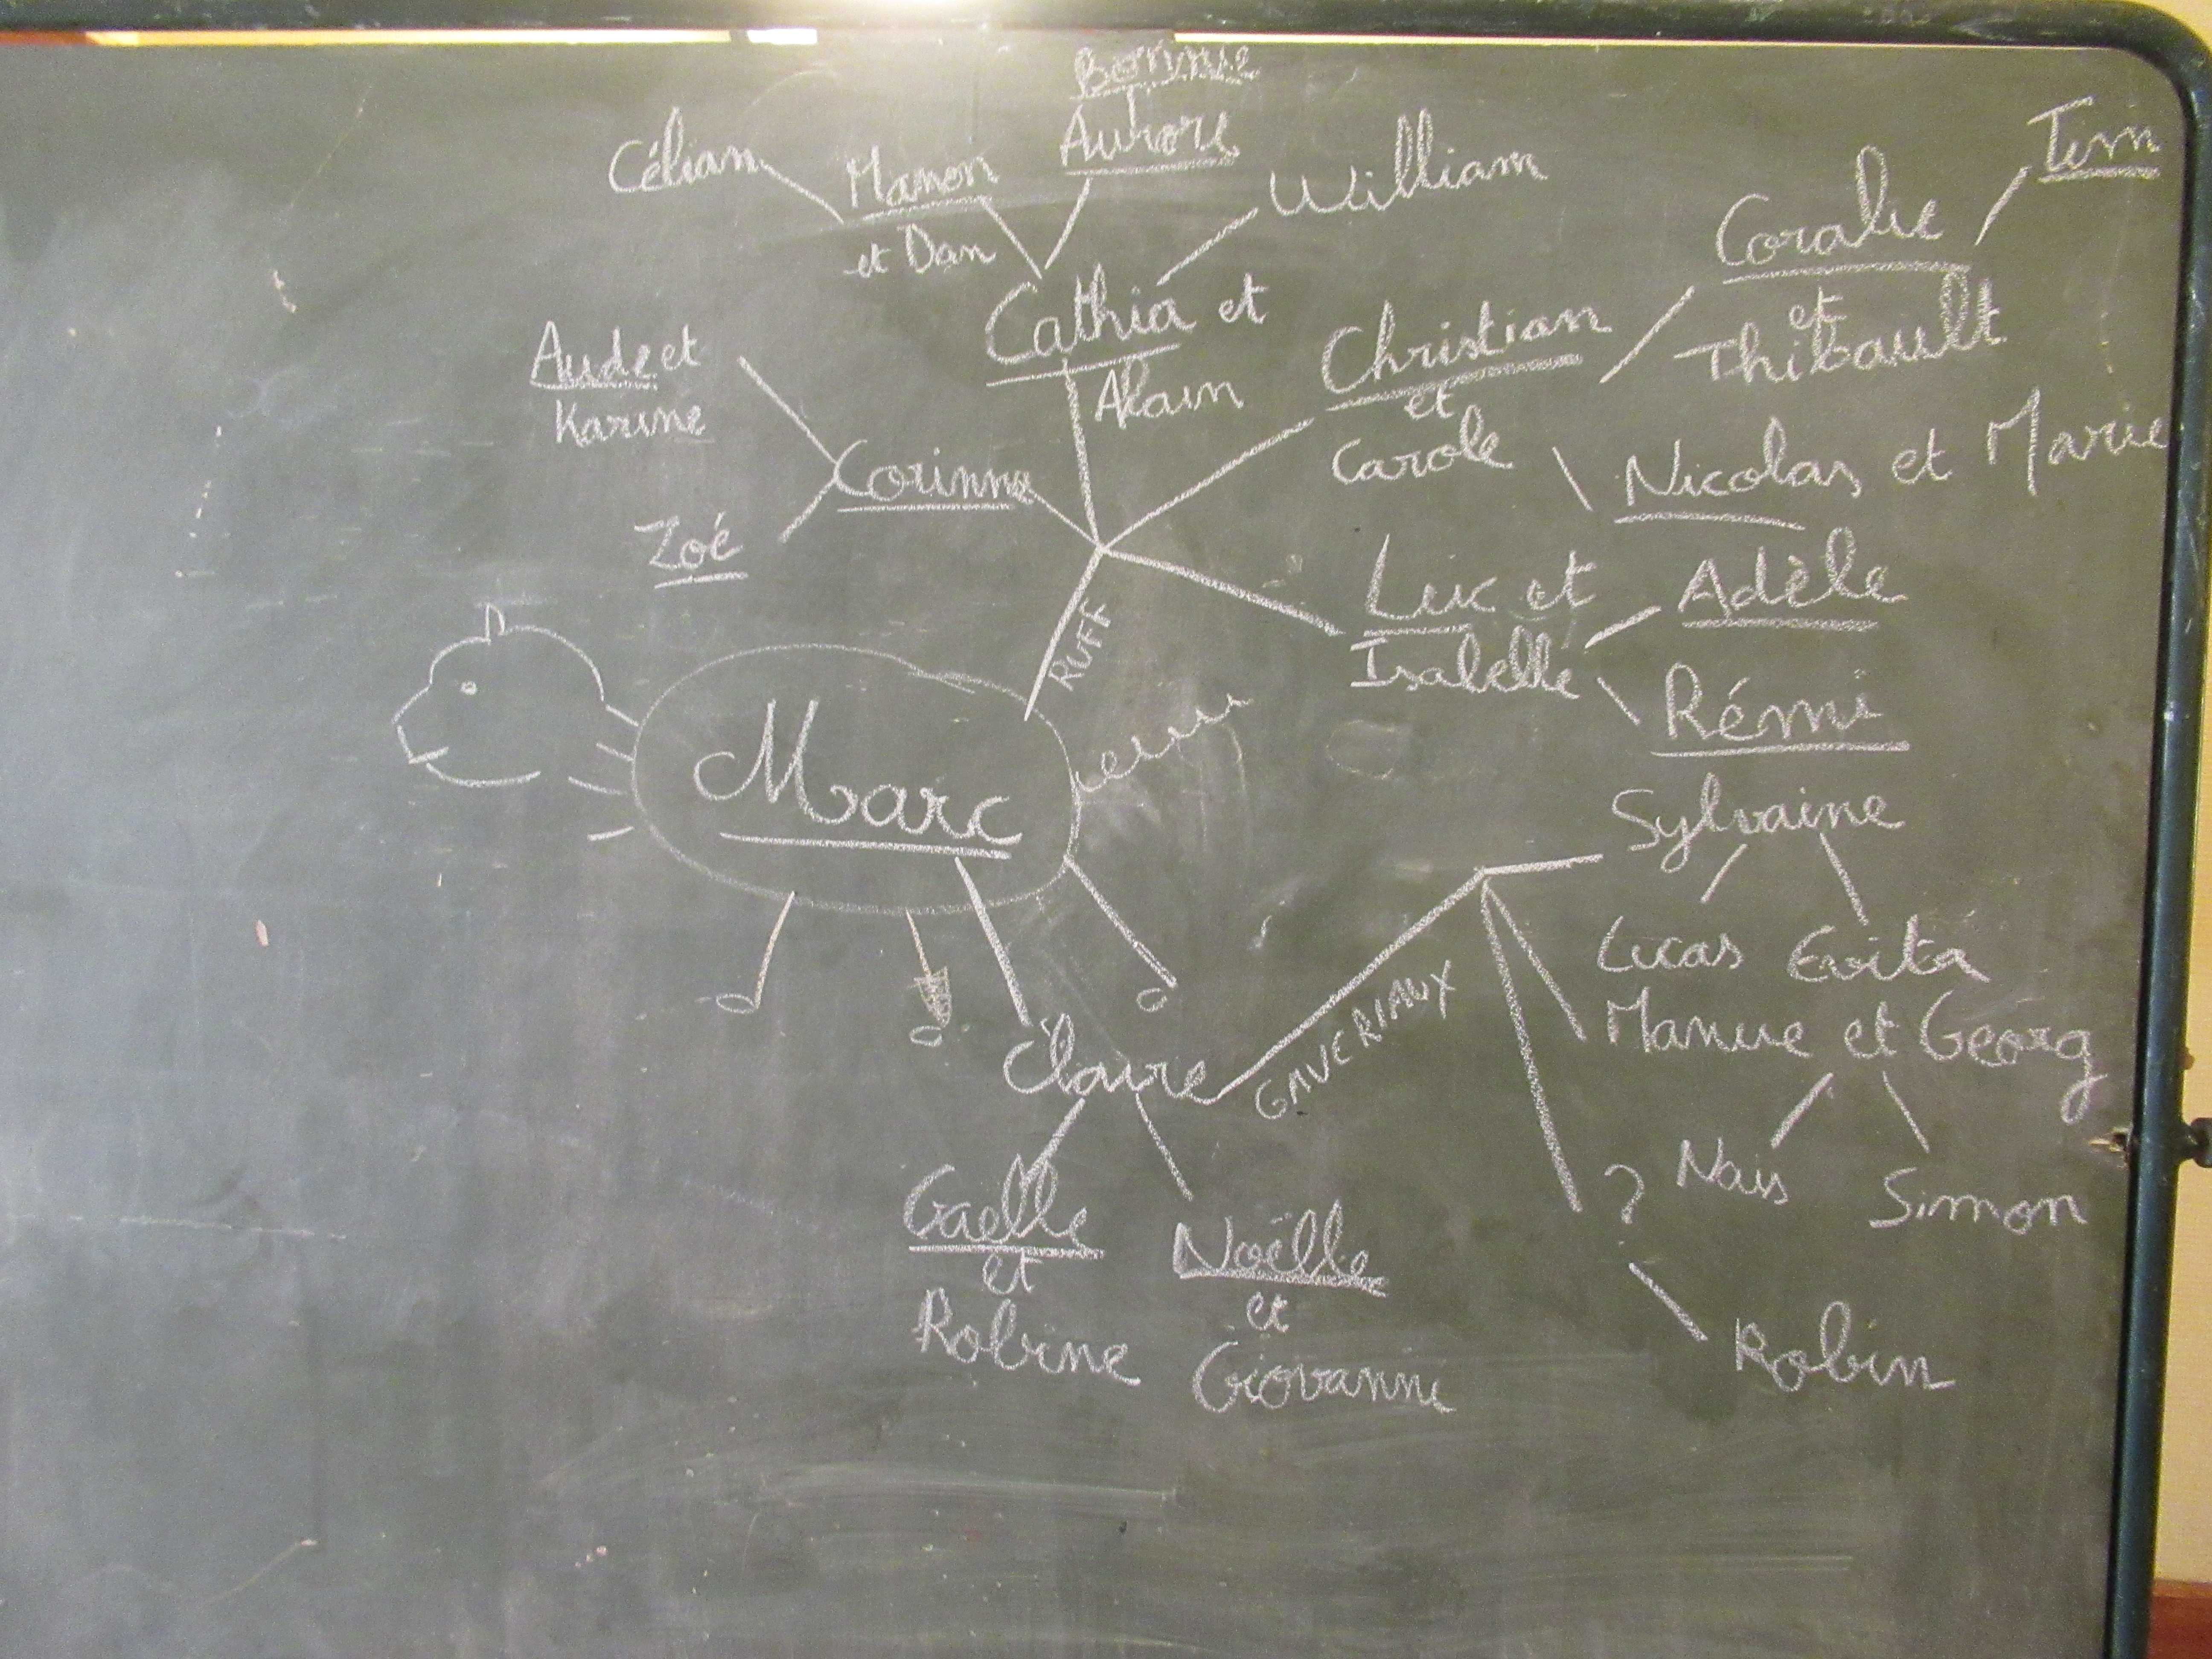 Bonnie
Aurore
Célian
Manon
et Dan
William
Tim
Coralie
et
Thibault
Cathia et
Alain
Christian
et
Carole
Aude et
Karine
Corinne
Nicolas et Marie
Zoé
Luc et
Isabelle
Adèle
Rémi
RUFF
Marc
Sylvaine
Lucas Evita
Manue et Georg
GAVERIAUX
Claire
Naïs
Simon
?
Gaelle
et
Robine
Noëlle
et
Giovanni
Robin